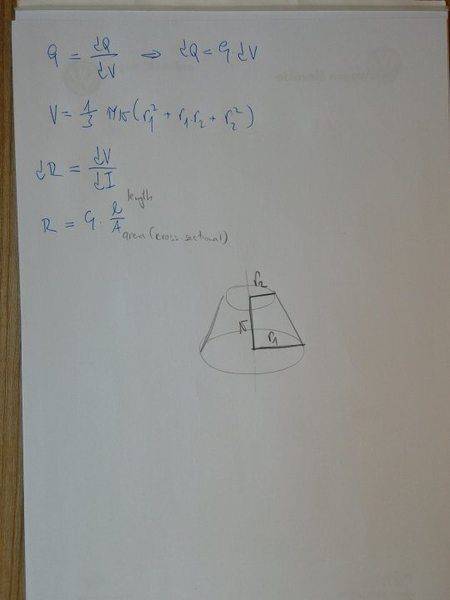 ϱ = dQ/dV ⇒ dQ = ϱ dV
V = 1/3 π v (r₁² + r₁r₂ + r₂²)
dR = dV/dI
R = ϱ · l/A
length
area (cross sectional)
r₂
v
r₁